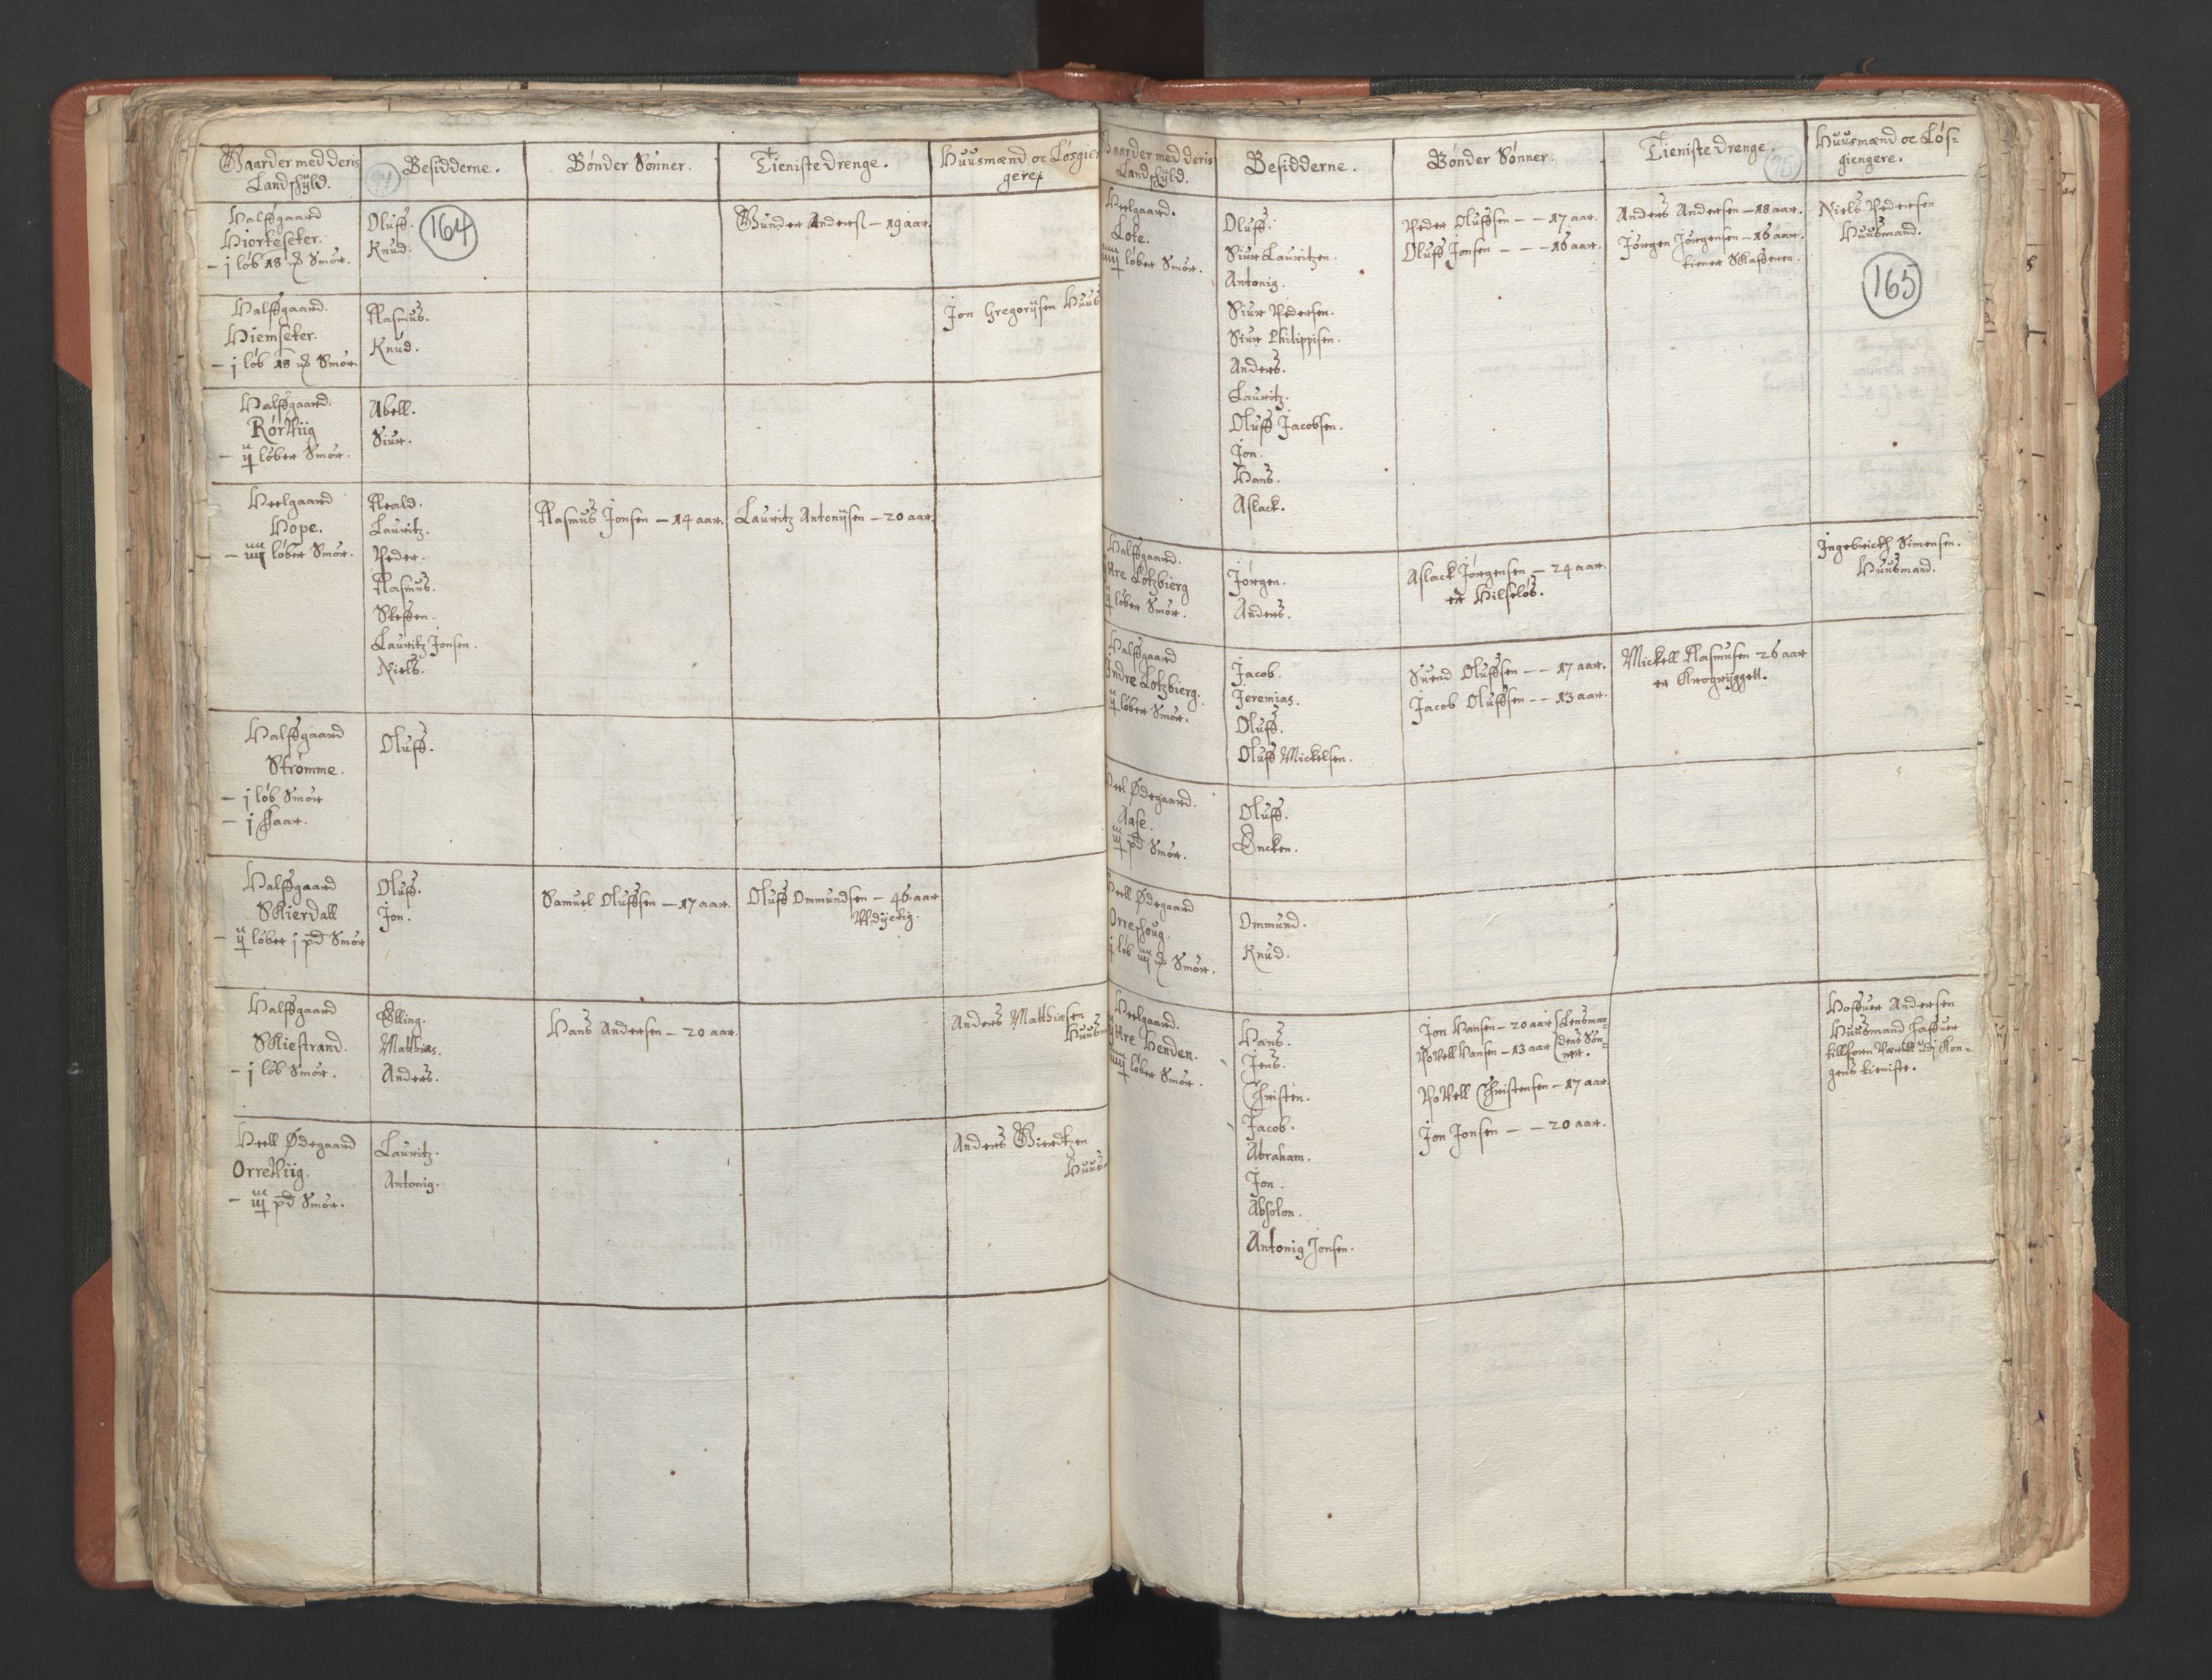 Gaarder med deris
Landschyld.
Besidderne.
Bønder Sønner.
Tieniste drenge.
Huusmænd oc Løsgien
gere.
164
Halffgaard
Hiorteseter.
- j løb 18 mꝶ Smør.
Oluff.
Knud.
Gunder Anders. - 19 aar.
Halffgaard.
Hiemseter.
- j løb 18 mꝶ Smør.
Rasmus.
Knud.
Jon Gregorijsen Huus
Halffgaard.
Rørviig
- ij løber Smør.
Abell.
Siur.
Heelgaard
Hope.
- iiij løber Smør.
Reald.
Lauritz.
Peder.
Rasmus.
Steffen.
Lauritz Jonsen.
Niels.
Rasmus Jonsen - 14 aar.
Lauritz Antonijsen - 20 aar.
Halffgaard
Strømme.
- j løb Smør
- j Faar.
Oluff.
Halffgaard
Skierdall
- ij løber j pd Smør
Oluff.
Jon.
Samuel Oluffsen - 17 aar.
Oluff Ommundsen - 46. aar
Vdyctig.
Halffgaard
Skiestrand.
- j løb Smør.
Elling.
Matthias.
Anders.
Hans Andersen - 20 aar.
Anders Mathiasen
Huus
Heell Ødegaard
Orreviig.
- iij pd Smør.
Lauritz.
Antonig.
Anders Gierdtzen
Huus
Gaarder med deris
Landschyld.
Besidderne.
Bønder Sønner.
Tieniste drenge.
Huusmænd oc Løs-
giengere.
165
Heelgaard.
Lote.
iiij løber Smør.
Oluff.
Siur Lauritzen.
Antonig.
Siur Pedersen.
Siur Philippsen.
Anders.
Lauritz.
Oluff Jacobsen.
Jon.
Hans.
Aslack.
Peder Oluffsen - - 17 aar.
Oluff Jonsen - - - 16 aar.
Anders Andersen - 18 aar.
Jørgen Jørgensen - 16 aar.
tiener Skafferen.
Niels Pedersen
Huusmand.
Halffgaard.
Ytre Lotzbierg
ij løber Smør.
Jørgen.
Anders.
Aslack Jørgensen - 24 aar.
er Hilseløs.
Ingebricth Simensen.
Huusmand.
Halffgaard
Indre Lotzbierg.
ij løber Smør.
Jacob.
Jeremias.
Oluff.
Oluff Mickelsen.
Suend Oluffsen - - 17 aar.
Jacob Oluffsen - - 13 aar.
Mickell Rasmusen 26 aar
er Krogryggett.
Heel Ødegaard.
Aase.
iij pd Smør.
Oluff.
Encken.
Heell Ødegaard
Orreshoug.
j løb iij mꝶ Smør.
Ommund.
Knud.
Heelgaard.
Ytre Henden.
iiij løber Smør.
Hans.
Jens.
Christen.
Jacob.
Abraham.
Jon.
Absolon.
Antonig Jonsen.
Jon Hansen - 20 aar Lensman-
Povell Hansen - 13 aar dens Søn-
ner.
Povell Christensen - 17 aar.
Jon Jonsen - - 20 aar.
Hoffuer Andersen
Huusmand haffuer
tillforn Værett udj Kon-
gens tieniste.